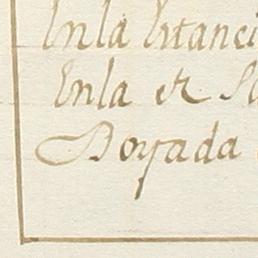 En la Estanci
En la et S
Boyada